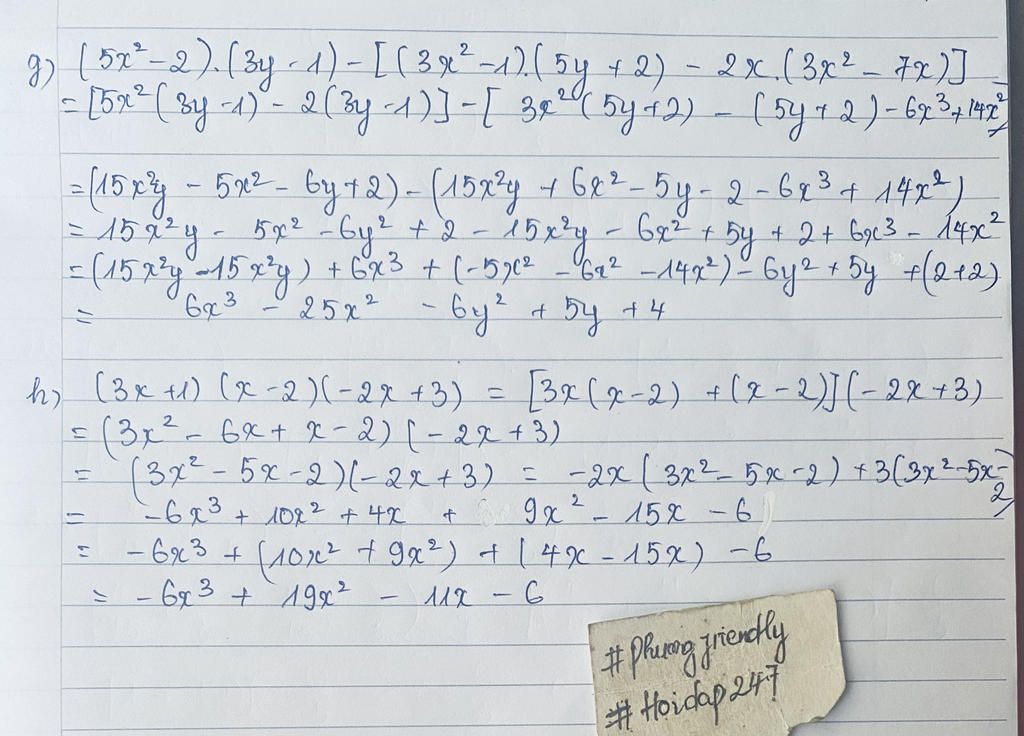 g) (5x² - 2).(3y - 1) - [(3x² - 1).(5y + 2) - 2x.(3x² - 7x)]
= [5x²(3y - 1) - 2(3y - 1)] - [3x²(5y + 2) - (5y + 2) - 6x³ + 14x²]
= (15x²y - 5x² - 6y + 2) - (15x²y + 6x² - 5y - 2 - 6x³ + 14x²)
= 15x²y - 5x² - 6y² + 2 - 15x²y - 6x² + 5y + 2 + 6x³ - 14x²
= (15x²y - 15x²y) + 6x³ + (-5x² - 6x² - 14x²) - 6y² + 5y + (2+2)
= 6x³ - 25x² - 6y² + 5y + 4
h) (3x + 1) (x - 2)(-2x + 3) = [3x(x - 2) + (x - 2)](-2x + 3)
= (3x² - 6x + x - 2)(-2x + 3)
= (3x² - 5x - 2)(-2x + 3) = -2x(3x² - 5x - 2) + 3(3x² - 5x - 2)
= -6x³ + 10x² + 4x + 9x² - 15x - 6
= -6x³ + (10x² + 9x²) + (4x - 15x) - 6
= -6x³ + 19x² - 11x - 6
#Phuongfriendly
#Hoidap247